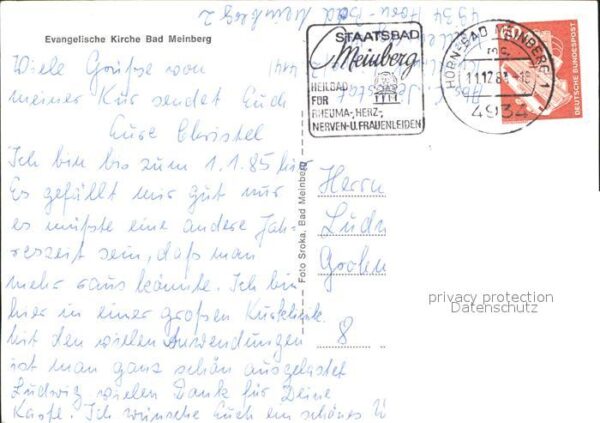 4934 Horn-Bad Meinberg 2
Evangelische Kirche Bad Meinberg
STAATSBAD
Meinberg
HEILBAD
FÜR
RHEUMA-, HERZ-,
NERVEN- U. FRAUENLEIDEN
HORN-BAD MEINBERG 1
11.12.84-18
4934
DEUTSCHE BUNDESPOST
Viele Grüße von
meiner Kur sendet Euch
Eure Christel
Ich bin bis zum 1.1.85 hier
Es gefällt mir gut nur
es müßte eine andere Jah-
reszeit sein, daß man
mehr raus könnte. Ich bin
hier in einer großen Kurklinik.
Mit den vielen Anwendungen
ist man ganz schön ausgelastet
Ludwig vielen Dank für Deine
Karte. Ich wünsche Euch ein schönes
Foto Sroka, Bad Meinberg
Herrn
Ludw
Grohn
8
privacy protection
Datenschutz